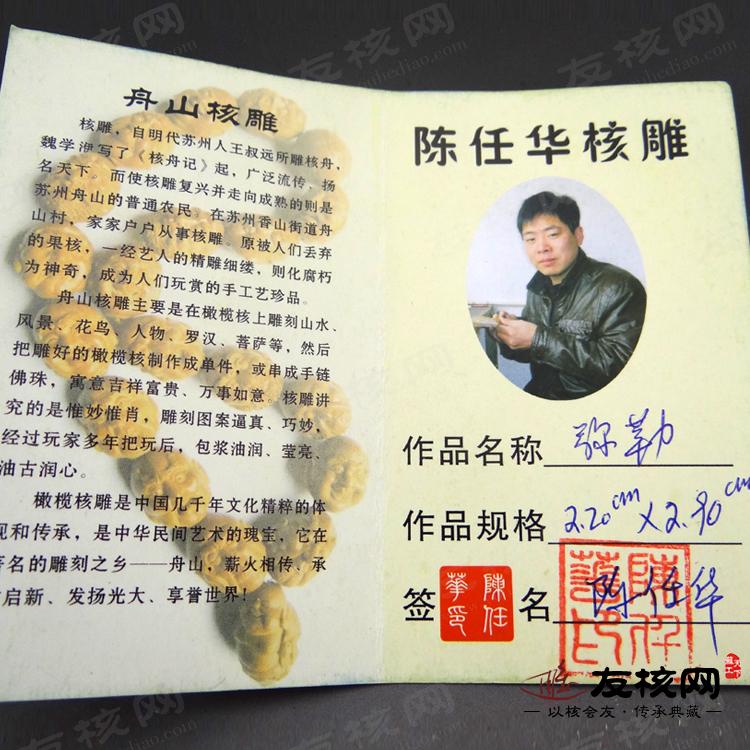 舟山核雕
核雕，自明代苏州人王叔远所雕核舟，
魏学洢写了《核舟记》起，广泛流传、扬
名天下。而使核雕复兴并走向成熟的则是
苏州舟山的普通农民。在苏州香山街道舟
山村，家家户户从事核雕。原被人们丢弃
的果核，一经艺人的精雕细缕，则化腐朽
为神奇，成为人们玩赏的手工艺珍品。
舟山核雕主要是在橄榄核上雕刻山水、
风景、花鸟、人物、罗汉、菩萨等，然后
把雕好的橄榄核制作成单件，或串成手链
佛珠，寓意吉祥富贵、万事如意。核雕讲
究的是惟妙惟肖，雕刻图案逼真、巧妙，
经过玩家多年把玩后，包浆油润、莹亮、
油古润心。
橄榄核雕是中国几千年文化精粹的体
现和传承，是中华民间艺术的瑰宝，它在
著名的雕刻之乡——舟山，薪火相传、承
启新、发扬光大、享誉世界！
陈任华核雕
作品名称 弥勒
作品规格 2.20cm×2.80cm
签名 陈任华
陳任
華印
陳任
華印
友核网
以核会友·传承典藏
友核网
友核网